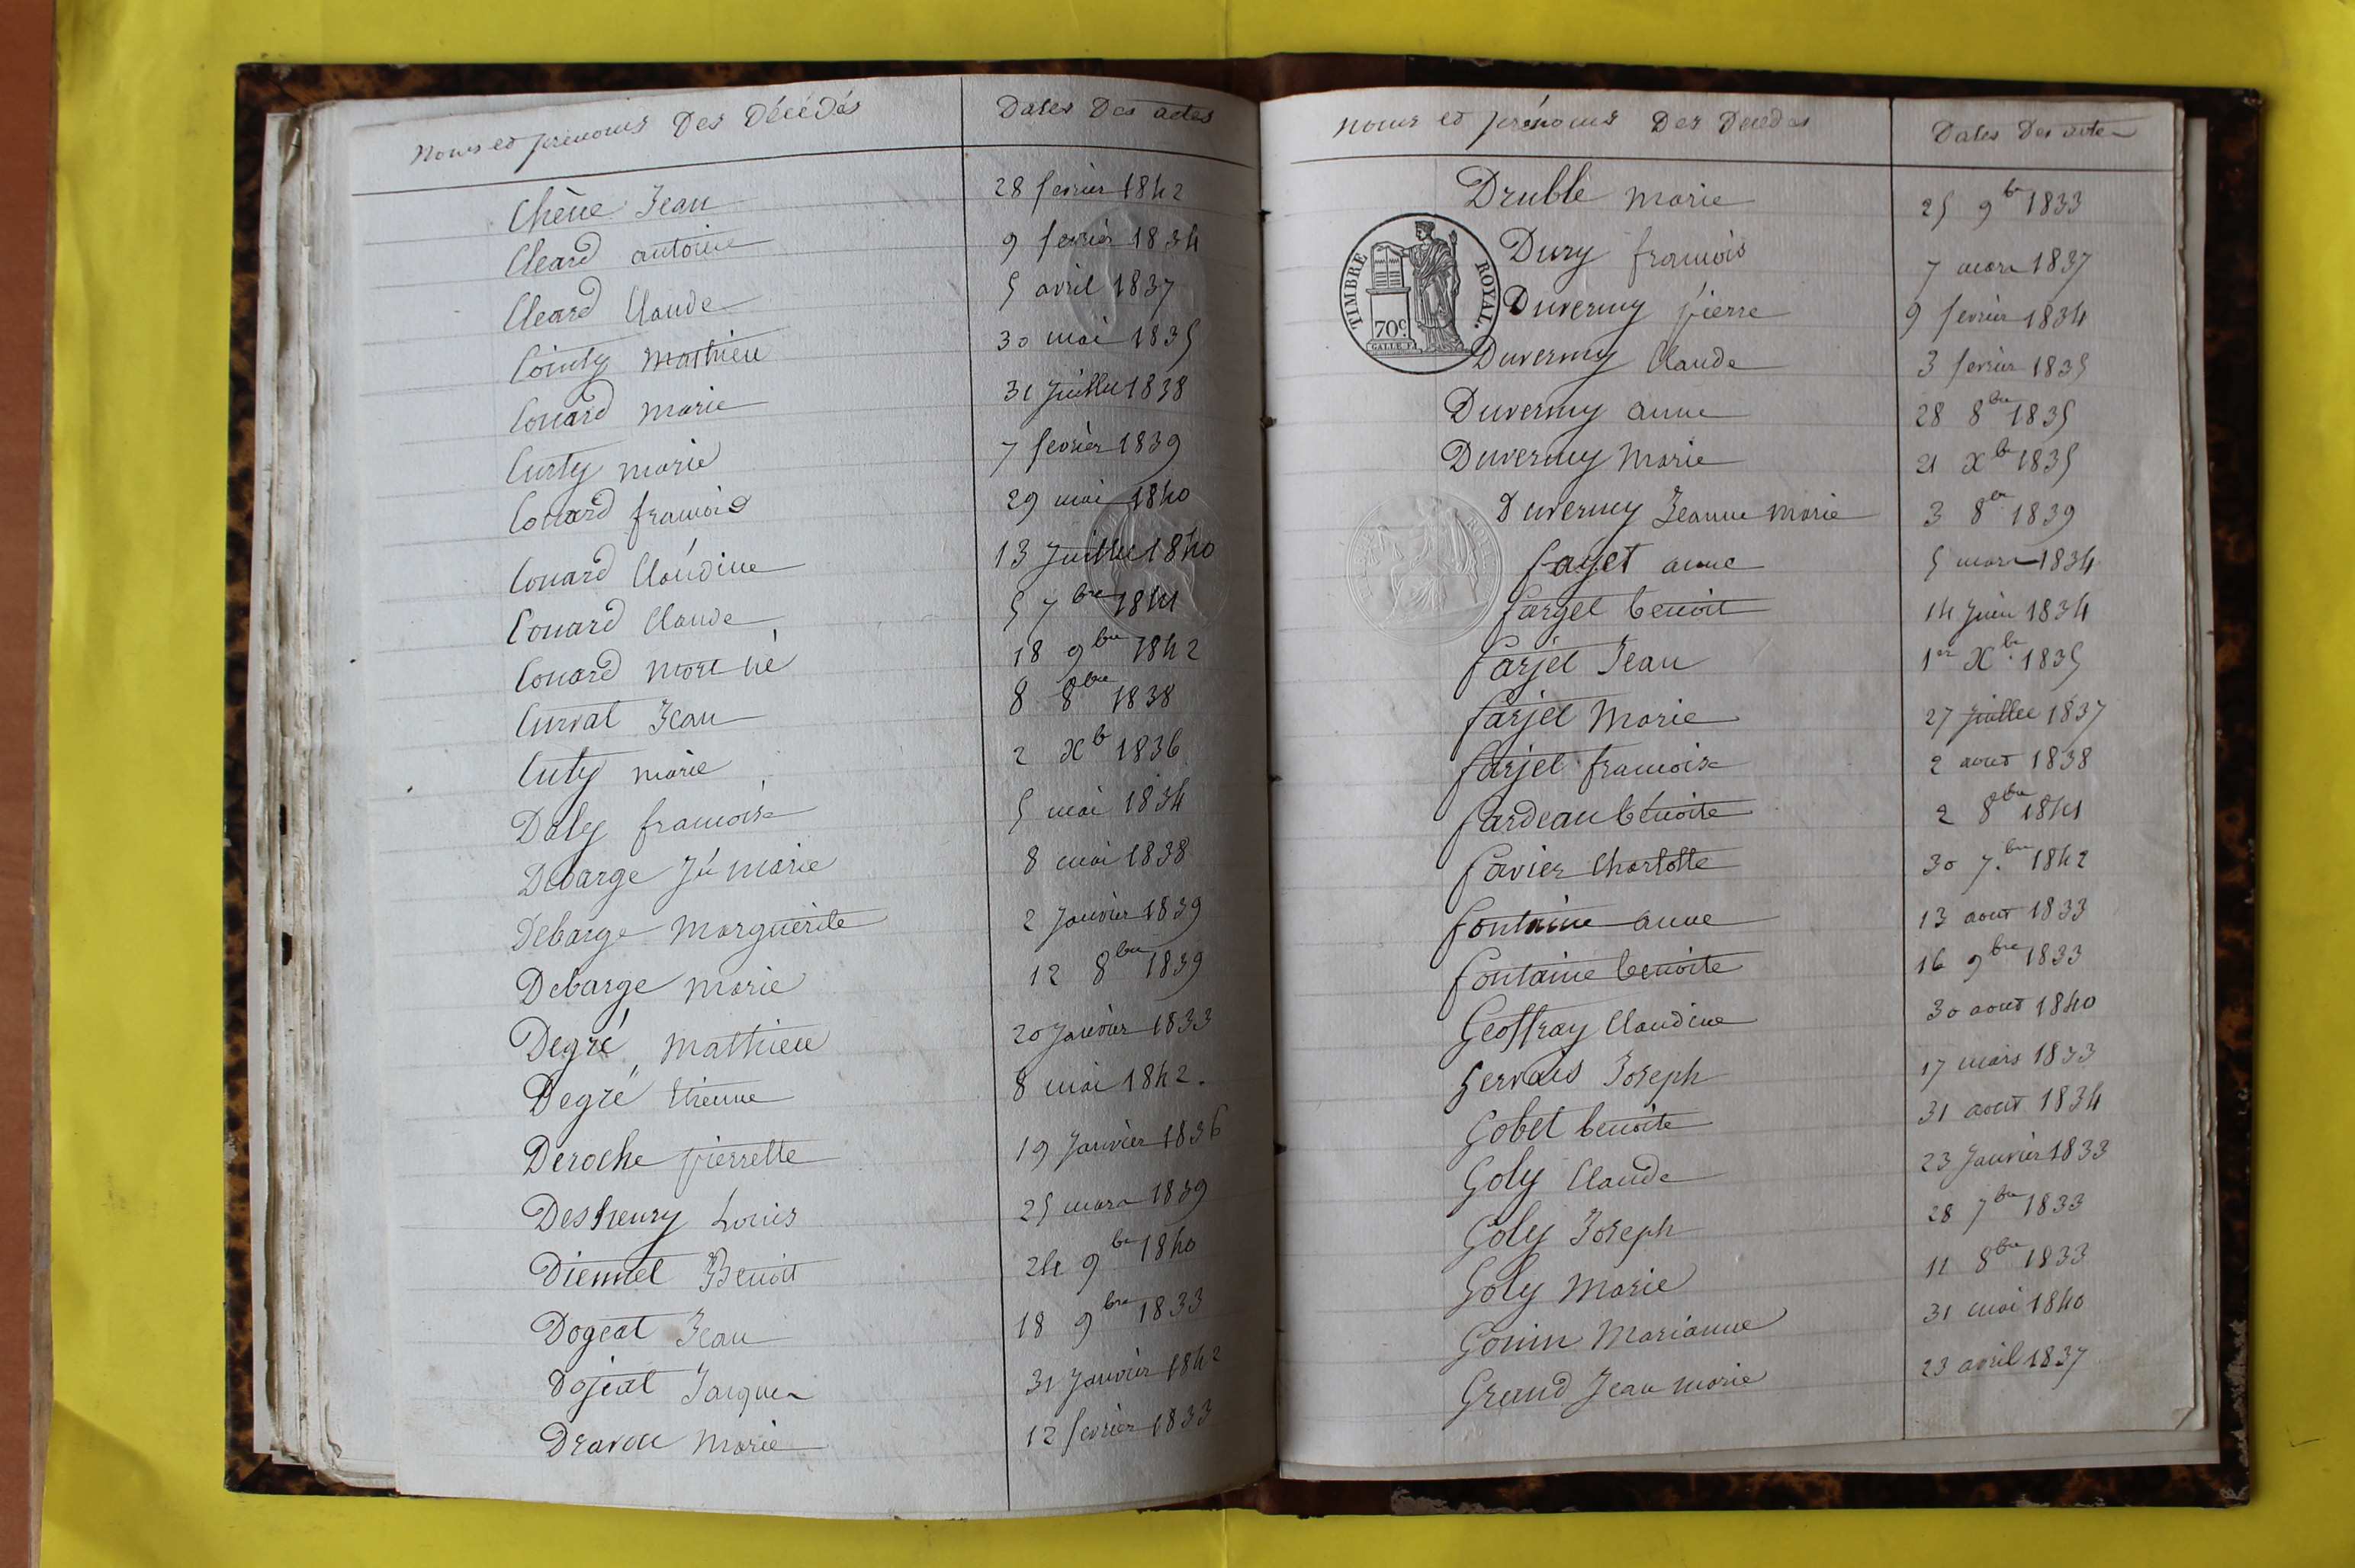 Noms et prénoms Des Décédés Dates Des actes
Chêne Jean 28 fevrier 1842
Cleard antoine 9 fevrier 1834
Cleard Claude 5 avril 1837
Cointy Mathieu 30 mai 1835
Couard marie 31 Juillet 1838
Curty marie 7 fevrier 1839
Couard francois 29 mai 1840
Couard Claudine 13 Juillet 1840
Couard Claude 5 7bre 1841
Couard mort né 18 9bre 1842
Curvat Jean 8 8bre 1838
Cuty marie 2 Xb 1836
Daly francoise 5 mai 1834
Debarge marie 8 mai 1838
Debarge Marguerite 2 Janvier 1839
Debarge marie 12 8bre 1839
Degré Mathieu 20 Janvier 1833
Degré Etienne 8 mai 1842.
Deroche pierrette 19 Janvier 1836
Deshenry Louis 25 mars 1839
Diennet Benoit 24 9bre 1840
Dogeat Jean 18 9bre 1833
Dojeat Jacques 31 Janvier 1842
Marie 12 fevrier 1833
Noms et prénoms Des Decedes Dates Des actes
Druble marie 25 9b 1833
Dury francois 7 mars 1837
Duvernay pierre 9 fevrier 1834
Duvernay Claude 3 fevrier 1835
Duvernay anne 28 8bre 1835
Duvernay Marie 21 Xb 1835
Duvernay Jeanne Marie 3 8bre 1839
fayet anne 5 mars 1834
farget benoit 14 Juin 1834
farjet Jean 1er Xbre 1835
farjet Marie 27 Juillet 1837
farjet francoise 2 aout 1838
fardeau benoite 2 8bre 1841
favier Charlotte 30 7.bre 1842
fontaine anne 13 aout 1833
fontaine benoite 16 9bre 1833
Geoffray Claudine 30 aout 1840
Gervais Joseph 17 mars 1833
Gobet benoite 31 aout 1834
Goly Claude 23 Janvier 1833
Goly Joseph 28 7bre 1833
Goly Marie 11 8bre 1833
Gonin Marianne 31 mai 1840
Grand Jean marie 23 avril 1837
TIMBRE ROYAL.
70c.